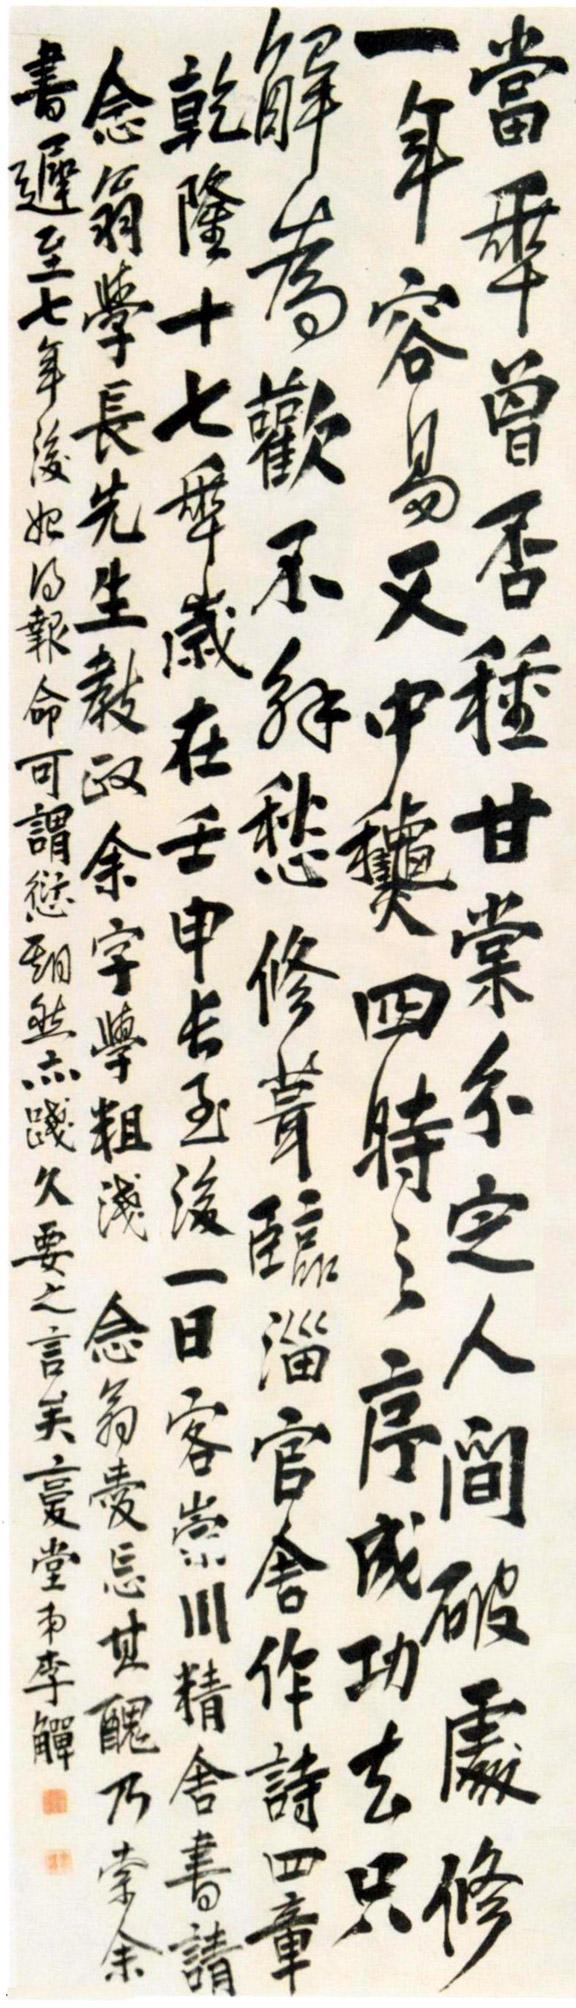 當年曾否種甘棠分定人間破處修
一年容易又中穐四時之序成功去只
解為歡不解愁修葺臨淄官舍作詩四章
乾隆十七年歲在壬申長至後一日客崇川精舍書請
念翁學長先生教政余字學粗淺念翁愛忘其醜乃索余
書遲至七年後始得報命可謂愆期然亦踐久要之言矣復堂弟李觶